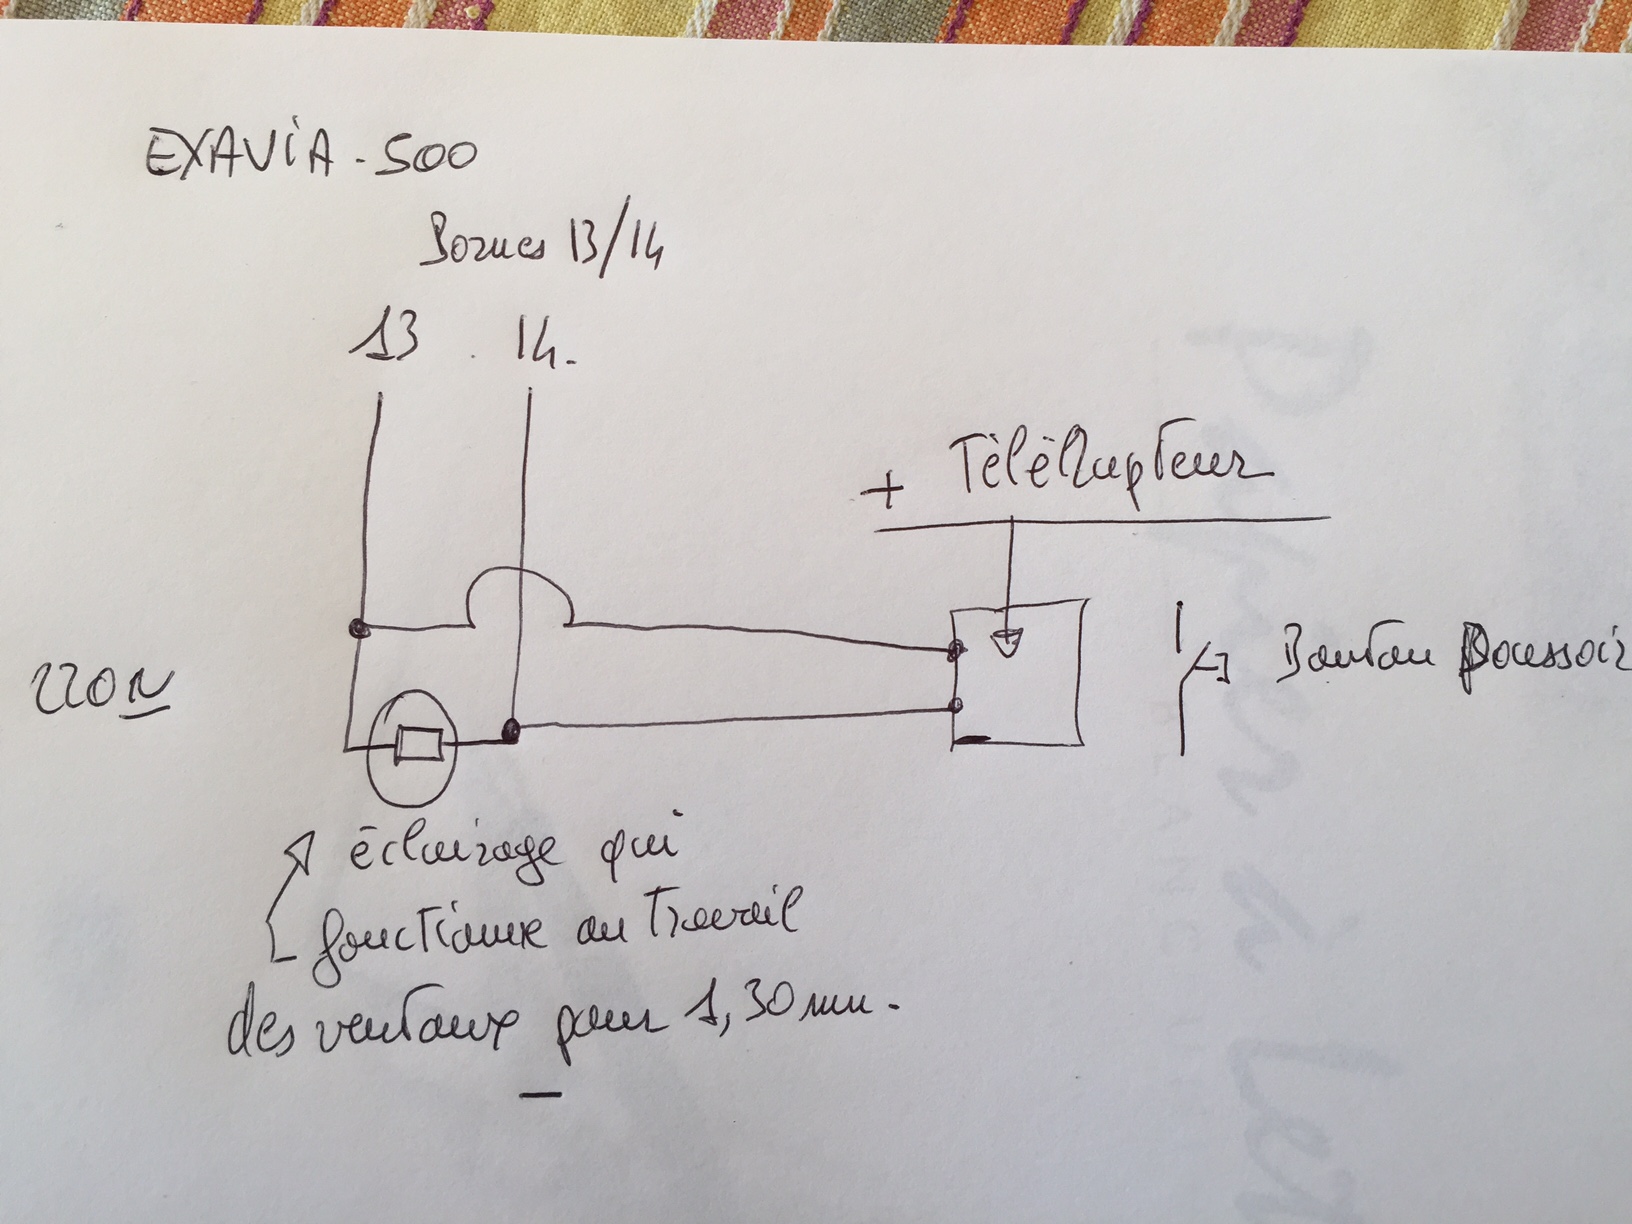 EXAVIA - 500
Bornes 13/14
13 . 14.
+ Télérupteur
220N
Bouton Poussoir
éclairage qui
fonctionne au travail
des ventaux pour 1,30 mn.